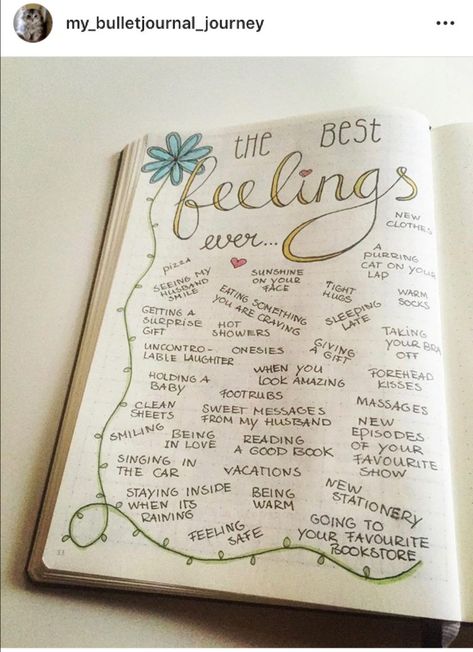 my_bulletjournal_journey
THE BEST
feelings
ever...
NEW
CLOTHES
PIZZA
SEEING MY
HUSBAND
SMILE
SUNSHINE
ON YOUR
FACE
A
PURRING
CAT ON YOUR
LAP
EATING SOMETHING
YOU ARE CRAVING
TIGHT
HUGS
WARM
SOCKS
GETTING A
SURPRISE
GIFT
HOT
SHOWERS
SLEEPING
LATE
TAKING
YOUR BRA
OFF
UNCONTRO-
LABLE LAUGHTER
ONESIES
GIVING
A GIFT
HOLDING A
BABY
WHEN YOU
LOOK AMAZING
FOREHEAD
KISSES
FOOTRUBS
CLEAN
SHEETS
SWEET MESSAGES
FROM MY HUSBAND
MASSAGES
SMILING
BEING
IN LOVE
READING
A GOOD BOOK
NEW
EPISODES
OF YOUR
FAVOURITE
SHOW
SINGING IN
THE CAR
VACATIONS
STAYING INSIDE
WHEN ITS
RAINING
BEING
WARM
NEW
STATIONERY
FEELING
SAFE
GOING TO
YOUR FAVOURITE
BOOKSTORE
33